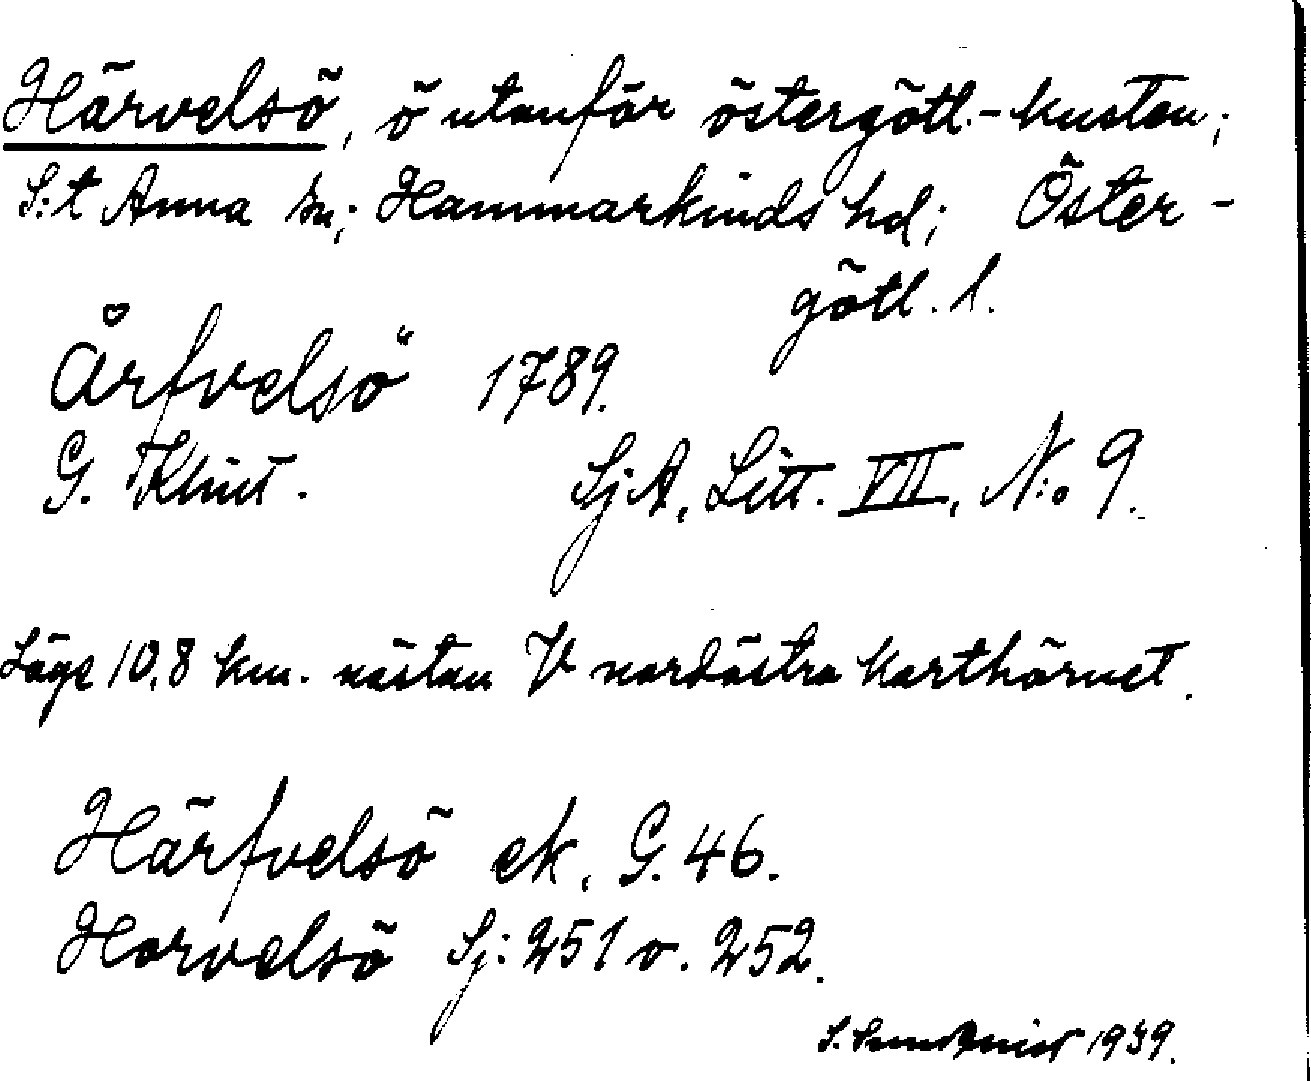 Härvelsö, ö utanför östergötl.-kusten;
S:t Anna sn; Hammarkinds hd; Öster-
götl. l.
Årfvelsö 1789.
G. Klint. SjA, Litt. VII, N:o 9.
Läge 10,8 km. nästan V nordöstra karthörnet.
Härfvelsö ek. G. 46.
Horvelsö Sj: 251 o. 252.
S. 1939.